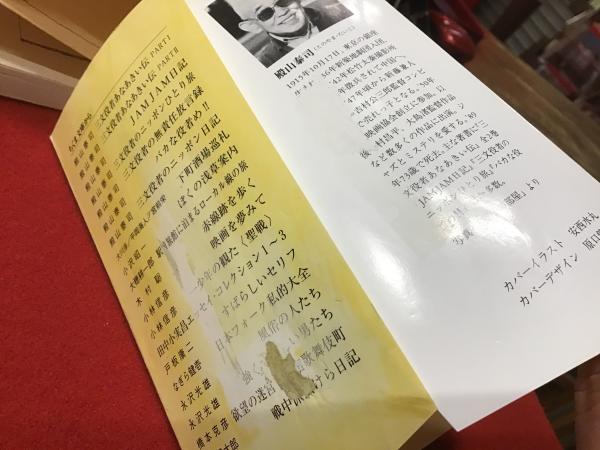 殿山泰司（とのやま・たいじ）
1915年10月17日、東京の銀座
生れ。36年新築地劇団入団、
'42年松竹太秦撮影所
年徴兵されて中国へ。
'47年頃から新藤兼人
=吉村公三郎監督コンビ
で売れっ子となる。'50年
映画協会創立に参加、以
後、村昌平、大島渚監督作品
など数多くの作品に出演。ジ
ャズとミステリを愛する。'89
年73歳で死去。主な著書に『三
文役者あなあきい伝』全2巻
JAMJAM日記』『三文役者の
ニッポンひとり旅』『バカな役
多数。
部屋』より
カバーイラスト 安西水丸
カバーデザイン
ちくま文庫から
三文役者あなあきい伝 PART I 殿山泰司
三文役者あなあきい伝 PART II 殿山泰司
JAMJAM日記 殿山泰司
三文役者のニッポンひとり旅 殿山泰司
三文役者の無責任放言録 殿山泰司
バカな役者め!! 殿山泰司
三文役者のニッポン日記 殿山泰司
下町酒場巡礼
ぼくの浅草案内 小沢昭一
駅前旅館に泊まるローカル線の旅 大穂耕一郎
赤線跡を歩く 木村聡
映画を夢みて 小林信彦
一少年の観た〈聖戦〉 小林信彦
田中小実昌エッセイ・コレクション1〜3
すばらしいセリフ 戸板康二
日本フォーク私的大全 なぎら健壱
風俗の人たち 永沢光雄
強くて い男たち 永沢光雄
欲望の迷宮 歌舞伎町 橋本克彦
戦中 けら日記